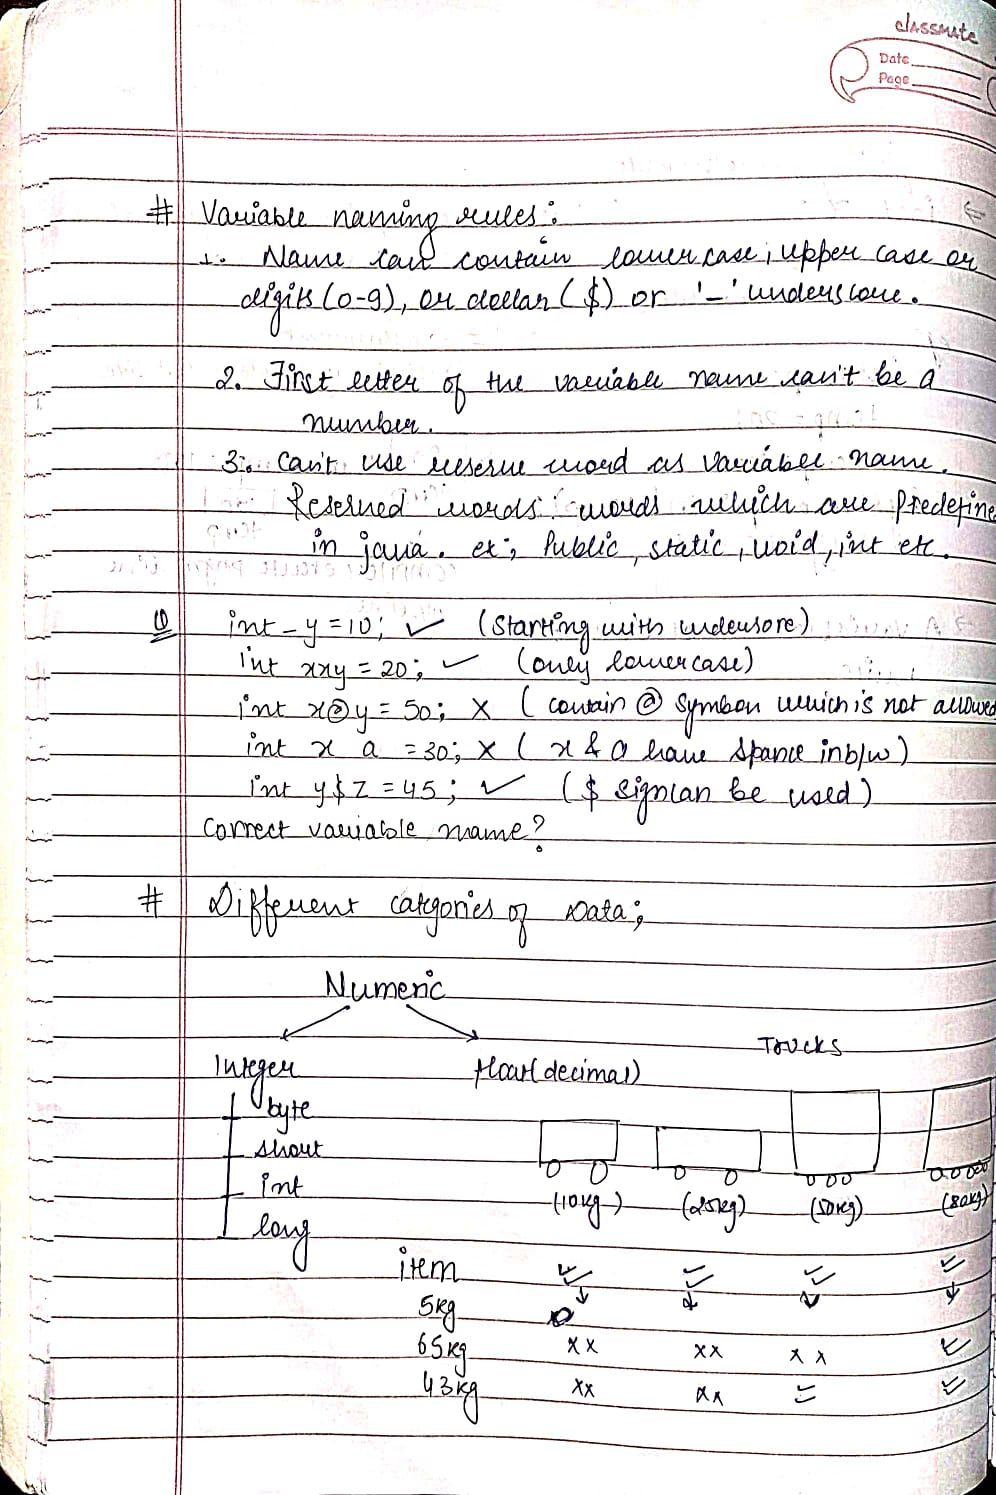 classmate
Date
Page
# Variable naming rules:
1. Name can contain lowercase, upper case or
digits (0-9), or dollar ($) or '_' underscore.
2. First letter of the variable name can't be a
number.
3. Can't use reserve word as variable name.
Reserved words: words which are predefine
in java. ex; Public, static, void, int etc.
Q int _y = 10; ✓ (starting with undersore)
int xxy = 20; ✓ (only lowercase)
int x@y = 50; X (contain @ symbon which is not allowed
int x a = 30; X (x & a have spance in b/w)
int y$z = 45; ✓ ($ sign can be used)
Correct variable name?
# Different catgories of Data;
Numeric
Integer float(decimal) Trucks
byte
short
int (10kg) (25kg) (50kg) (80kg)
long
item ✓ ✓ ✓ ✓
5kg
65kg xx xx xx ✓
43kg xx xx ✓ ✓